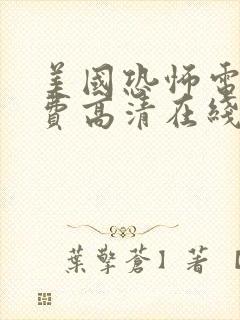 美國恐怖電
費高清在綫
葉擎蒼】著 【